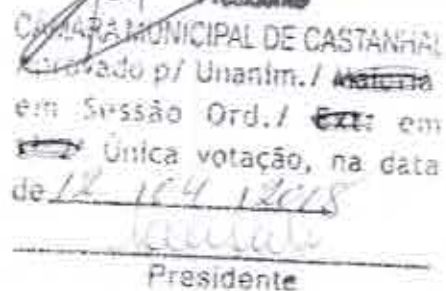 Presidente
CÂMARA MUNICIPAL DE CASTANHAL
Aprovado p/ Unanim./ Maioria
em Sessão Ord./ Ext: em
Única votação, na data
de 12 / 04 / 2018
Presidente